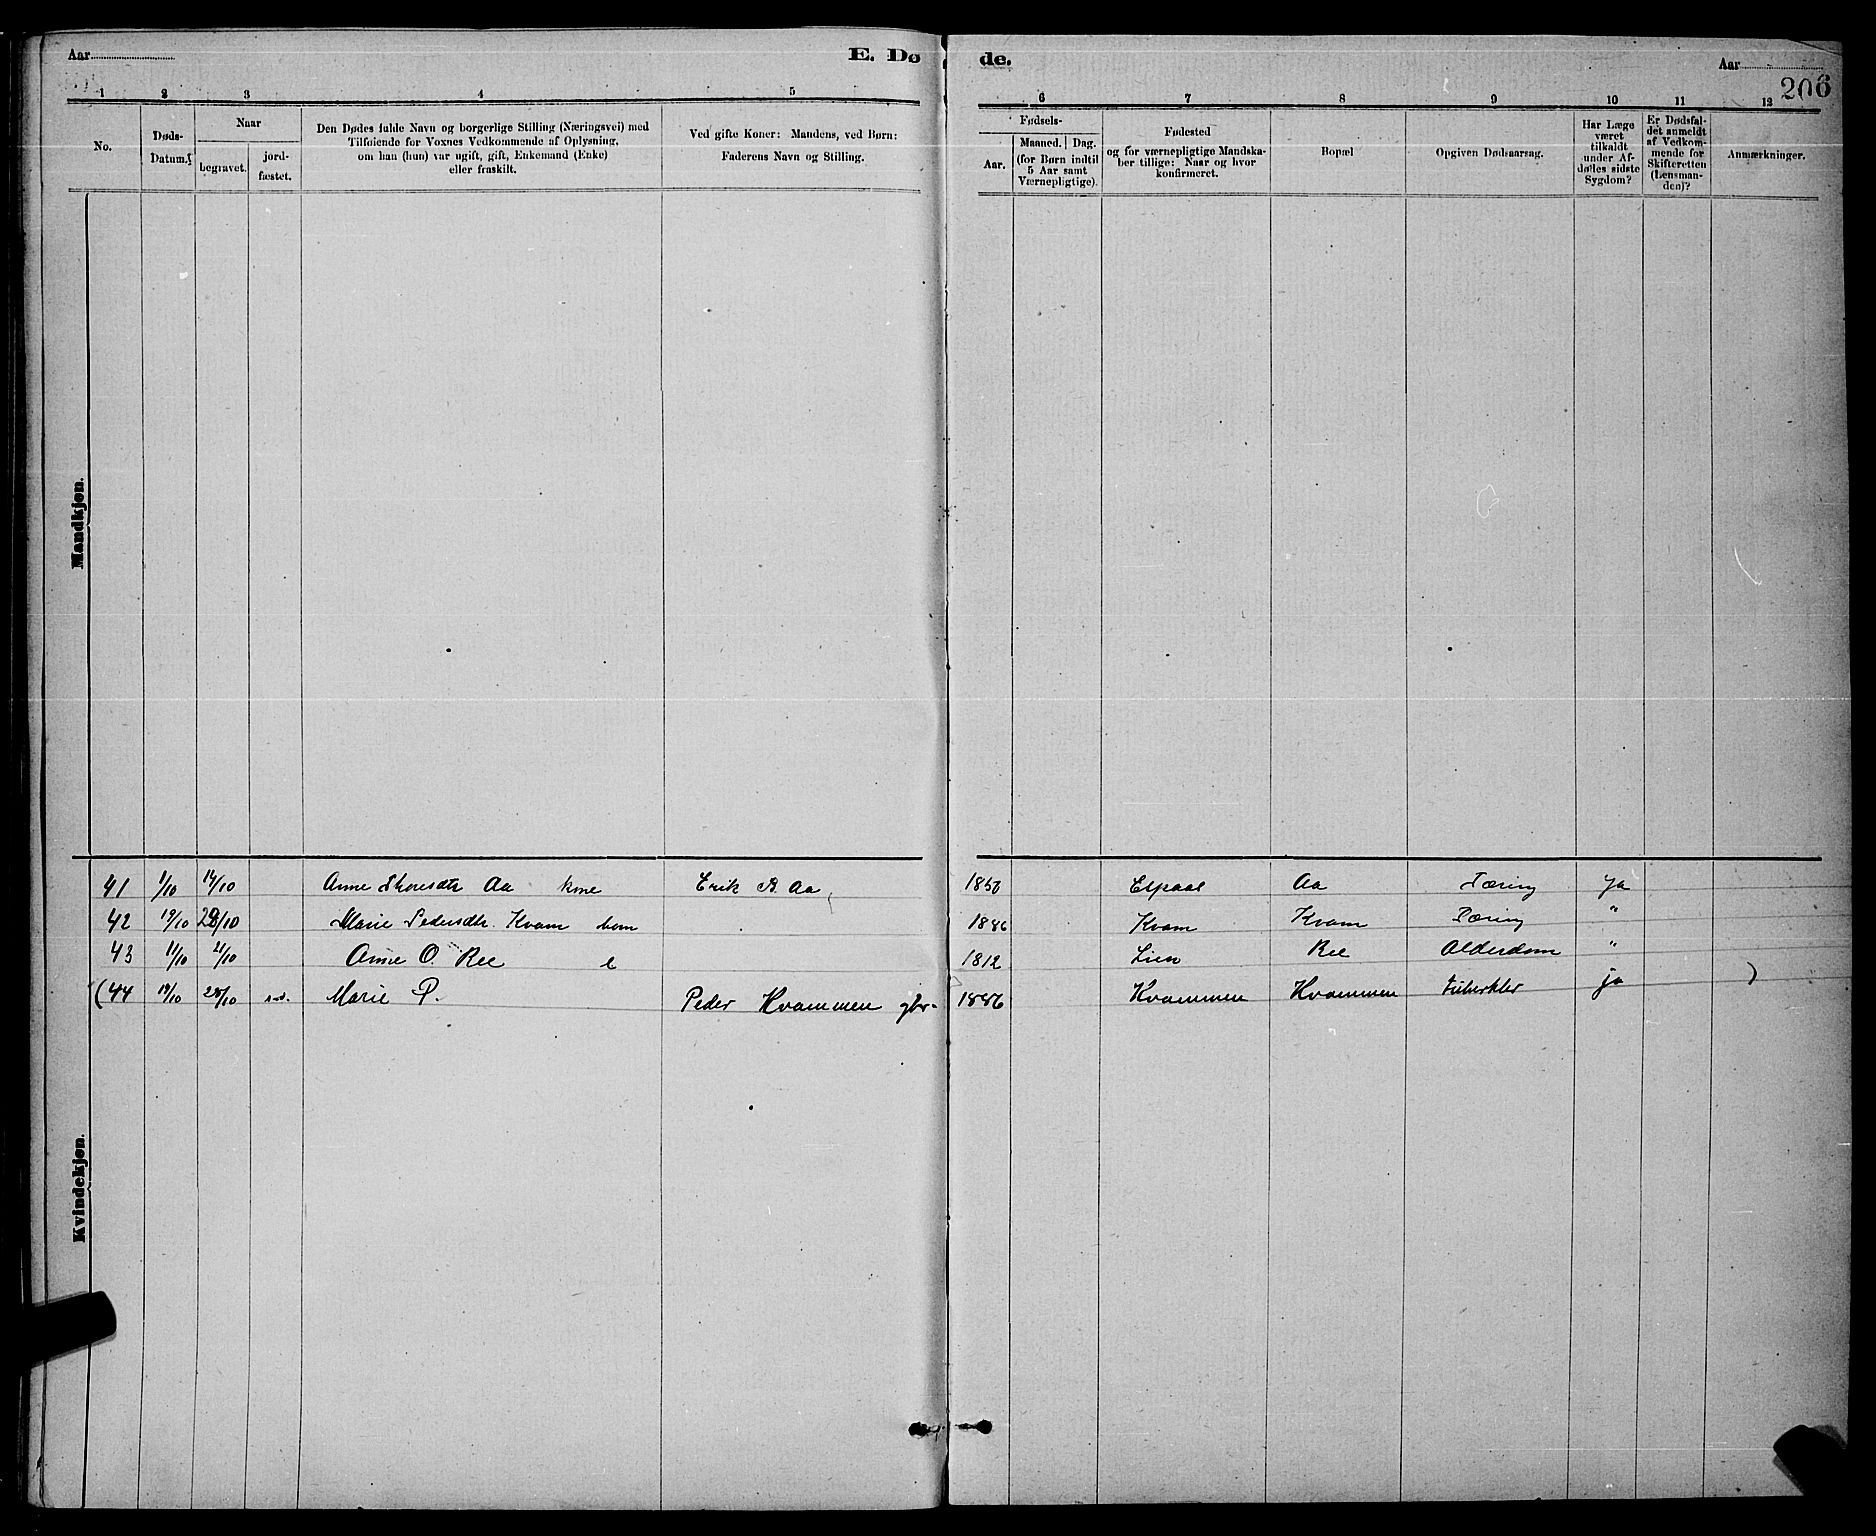 Aar
E. Dø
de.
Aar
206
1 2 3 4 5 6 7 8 9 10 11 12
No.
Døds-
Datum.
Naar
begravet.
jord-
fæstet.
Den Dødes fulde Navn og borgerlige Stilling (Næringsvei) med
Tilføiende for Voxnes Vedkommende af Oplysning,
om han (hun) var ugift, gift, Enkemand (Enke)
eller fraskilt.
Ved gifte Koner: Mandens, ved Børn:
Faderens Navn og Stilling.
Fødsels-
Aar.
Maaned. Dag.
(for Børn indtil
5 Aar samt
Værnepligtige).
Fødested
og for værnepligtige Mandska-
ber tillige: Naar og hvor
konfirmeret.
Bopæl
Opgiven Dødsaarsag.
Har Læge
været
tilkaldt
under Af-
dødes sidste
Sygdom?
Er Dødsfal-
det anmeldt
af Vedkom-
mende for
Skifteretten
(Lensman-
den)?
Anmærkninger.
Mandkjøn.
Kvindekjøn.
41 1/10 14/10 Anne Aa kone Erik Aa 1850 Aa Tæring Ja
42 19/10 28/10 Marie Pedersdtr. Kvam barn 1886 Kvam Kvam Tæring "
43 11/10 Anne O. Ree e 1812 Lien Ree Alderdom "
(44 19/10 28/10 s.d. Marie P. Peder Kvammen gbr. 1886 Kvammen Kvammen tuberkler ja )